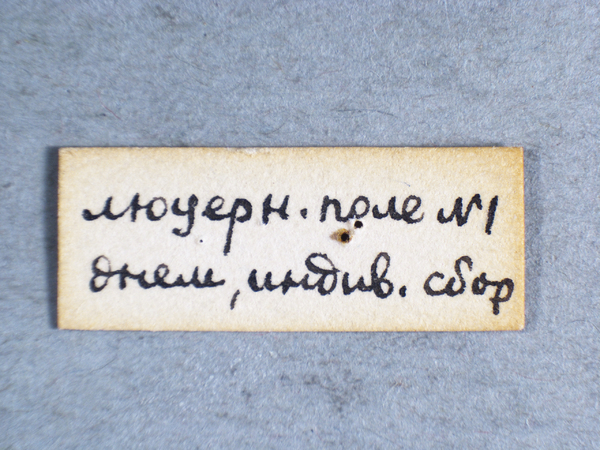 люцерн. поле №1
днем, индив. сбор